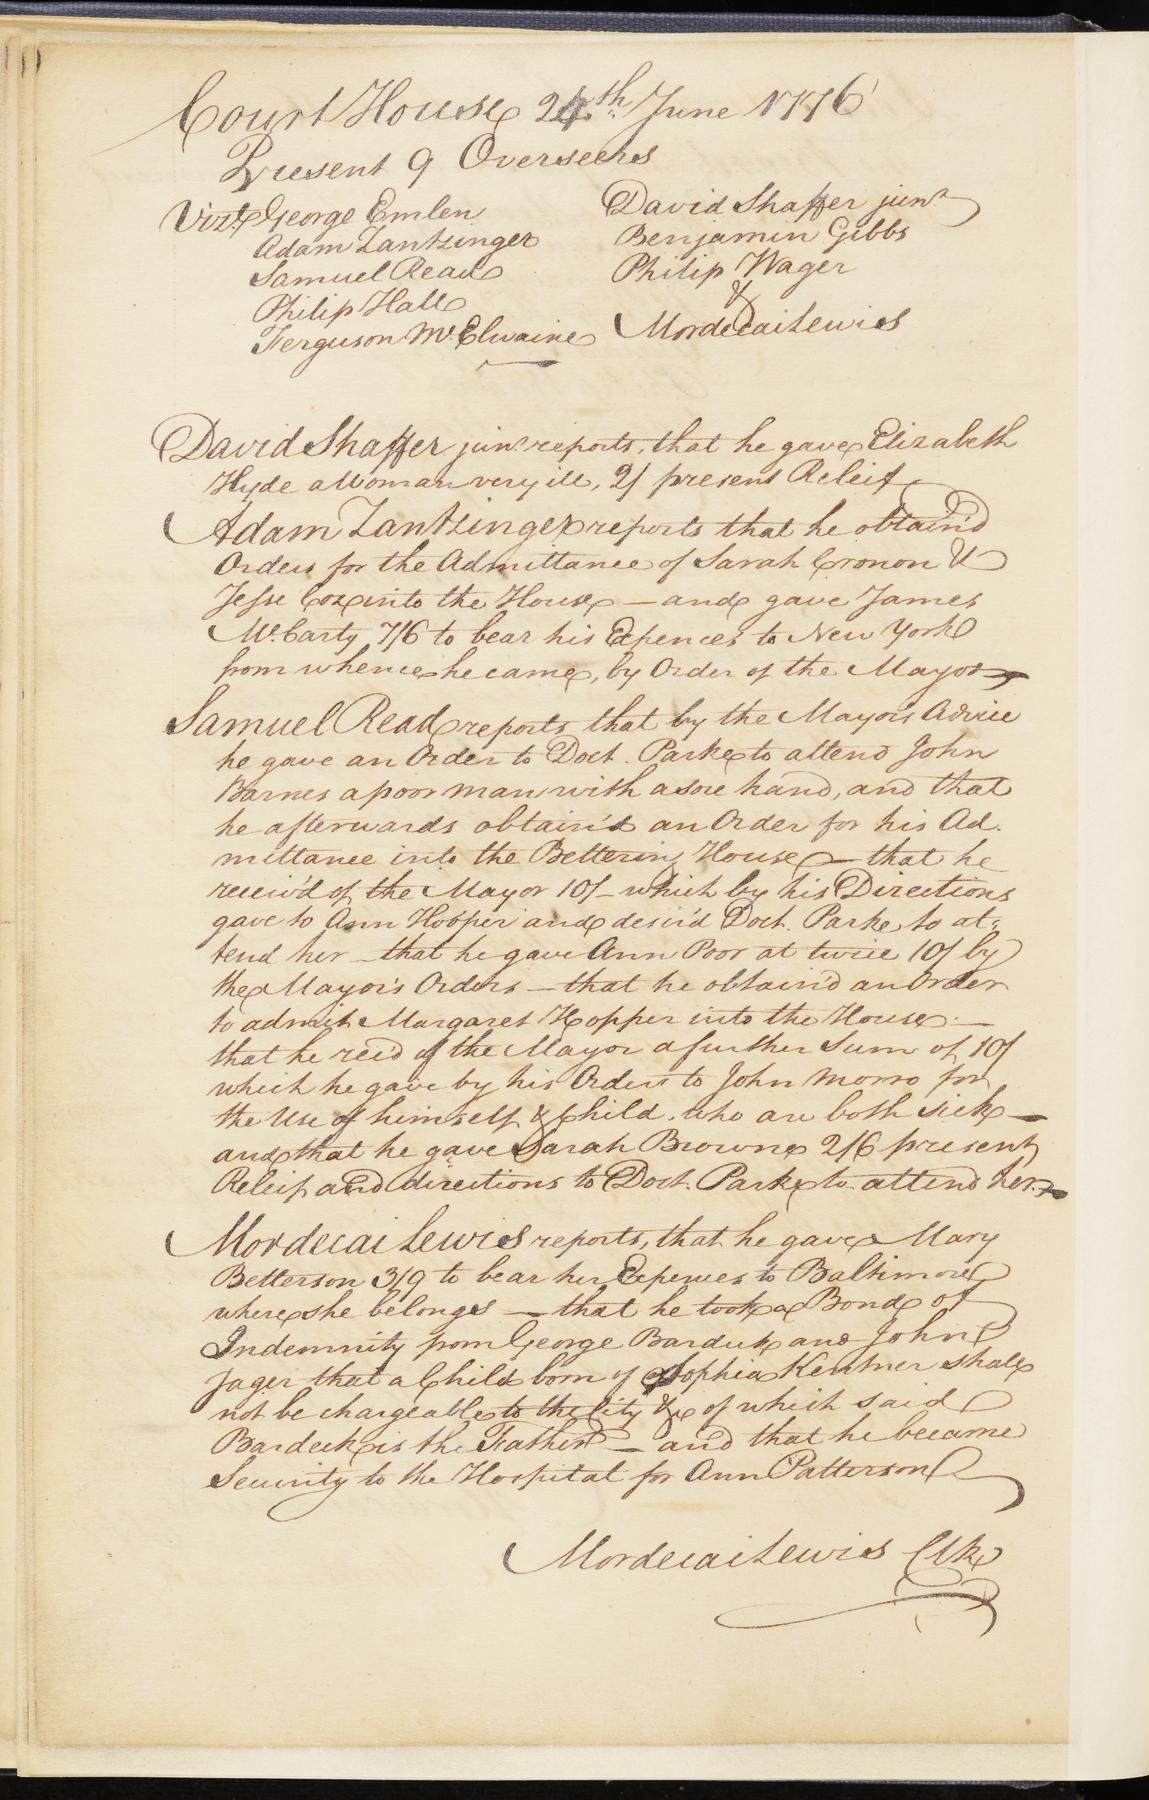 Court House 24th June 1776
Present 9 Overseers
Vizt. George Emlen
Adam Zantzinger
Samuel Read
Philip Hall
Ferguson Mc.Elwaine
David Shaffer junr.
Benjamin Gibbs
Philip Wager
&
Mordecai Lewis
David Shaffer junr. reports, that he gave Elizabeth
Hyde a Woman very ill, 2/ present Releif
Adam Zantzinger reports that he obtain'd
Orders for the Admittance of Sarah Cronon &
Jesse Cox into the House — and gave James
Mc.Carty 7/6 to bear his Expences to New York
from whence he came, by Order of the Mayor
Samuel Read reports, that by the Mayor's Advice
he gave an Order to Doct. Parke to attend John
Barnes a poor man with a sore hand, and that
he afterwards obtain'd an Order for his Ad.
mittance into the Bettering House — that he
receiv'd of the Mayor 10/— which by his Directions
gave to Ann Hooper and desir'd Doct. Parke to at:
tend her — that he gave Ann Poor at twice 10/ by
the Mayor's Orders — that he obtain'd an Order
to admit Margaret Hopper into the House —
that he rec'd of the Mayor a further Sum of 10/
which he gave by his Orders to John Morro for
the Use of himself & Child who are both sick —
and that he gave Sarah Browne 2/6 present
Releif and directions to Doct. Parke to attend her.
Mordecai Lewis reports, that he gave Mary
Betterson 3/9 to bear her Expences to Baltimore
where she belongs — that he took a Bond of
Indemnity from George Bardeck and John
Jager that a Child born of Sophia Kentner shall
not be chargeable to the City &c of which said
Bardeck is the Father — and that he became
Security to the Hospital for Ann Patterson
Mordecai Lewis Clk